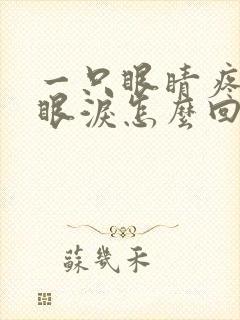 一只眼睛疼
眼淚怎麼回
蘇幾禾